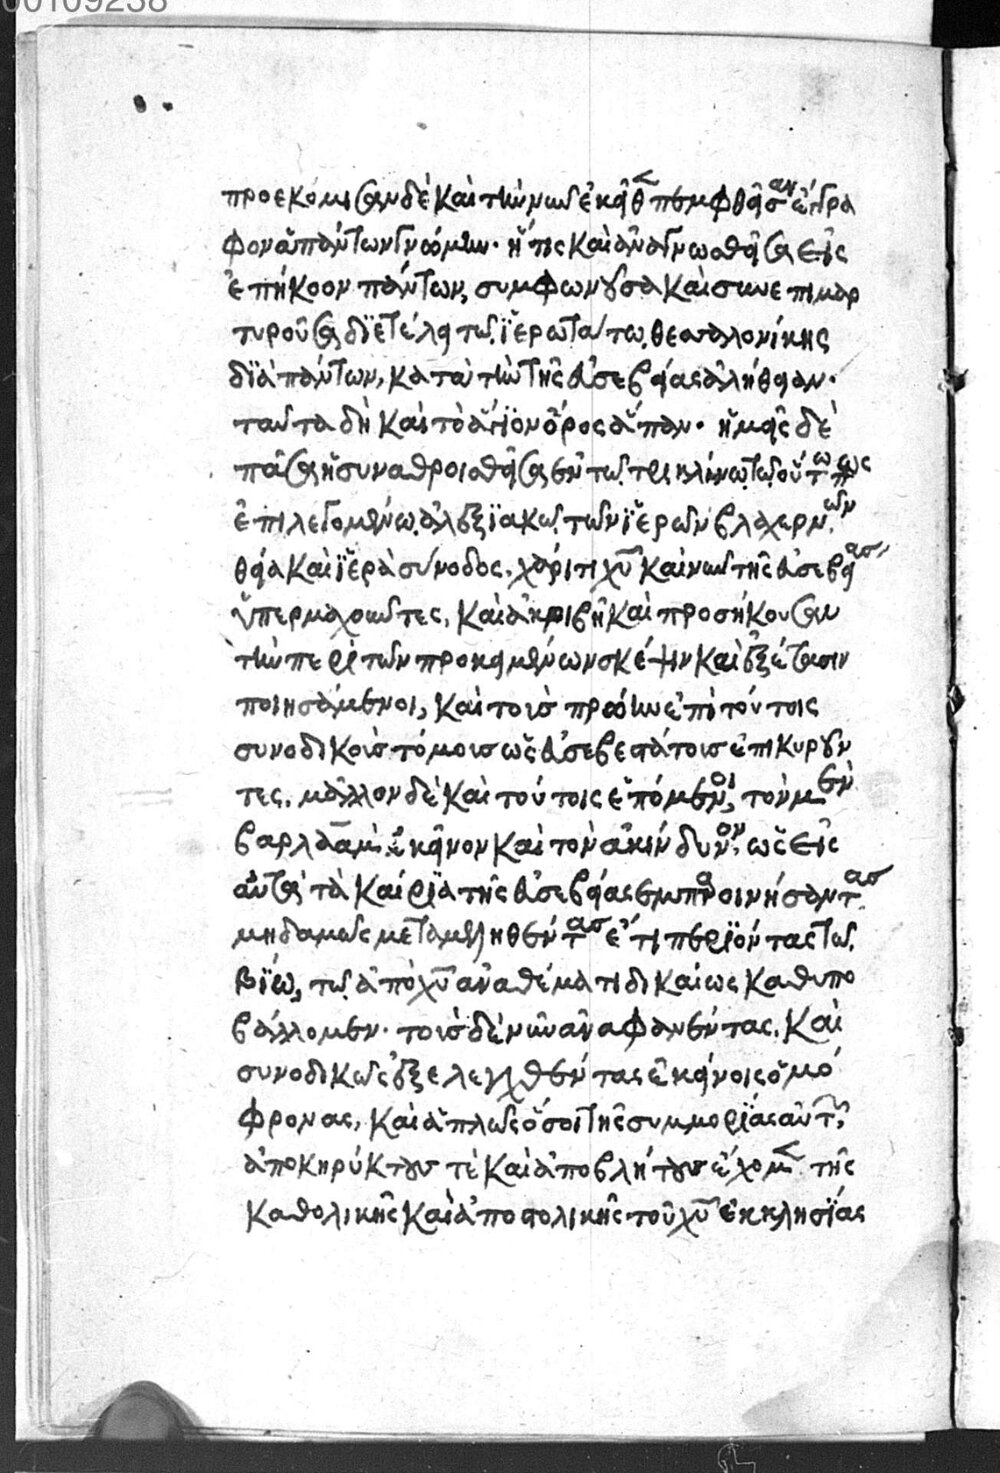 00109238
προεκόμισαν δὲ καὶ τὴν νῦν ἐκεῖθ πεμφθεῖσαν ἔγγρα
φον ἅπάντων γνώμην· ἥτις καὶ ἀναγνωσθεῖσα εἰς
ἐπήκοον πάντων, συμφωνοῦσα καὶ συνεπιμαρ
τυροῦσα διετέλει τῶ ἱερωτάτω θεσσαλονίκης
διὰ πάντων, κατὰ τὴν τῆς εὐσεβείας ἀλήθειαν·
ταῦτα δὴ καὶ τὸ ἅγιον ὄρος ἅπαν· ἡμεῖς δὲ
πᾶσα ἡ συναθροισθεῖσα ἐν τῶ τρικλίνω τῶ οὕτω πως
ἐπιλεγομένω ἀλεξιακῶ τῶν ἱερῶν βλαχερνῶν
θεία καὶ ἱερὰ σύνοδος, χάριτι χυ καὶ νῦν τῆς εὐσεβείας
ὑπερμαχοῦντες, καὶ ἀκριβῆ καὶ προσήκουσαν
τὴν περὶ τῶν προκειμένων σκέψιν καὶ ἐξέτασιν
ποιησάμενοι, καὶ τοῖσ πρώην ἐπὶ τούτοις
συνοδικοῖσ τόμοισ ὡς εὐσεβεστάτοισ ἐπικυροῦν
τες, μᾶλλον δὲ καὶ τούτοις ἑπόμενοι, τὸν μὲν
βαρλαὰμ ἐκεῖνον καὶ τὸν ἀκίνδυνον, ὡς εἰς
αὐτὰ τὰ καίρια τῆς εὐσεβείας ἐμπαροινήσαντας
μηδαμῶς μεταμεληθέντασ ἔτι περιόντας τῶ
βίω, τῶ ἀπὸ χυ ἀναθέματι δικαίως καθυπο
βάλλομεν· τοῖσ δὲ νῦν ἀναφανέντας, καὶ
συνοδικῶς ἐξελεγχθέντας ἐκείνοις ὁμό
φρονας, καὶ ἁπλῶς ὅσοι τῆς συμμορίας αὐτῶν,
ἀποκηρύκτουσ τὲ καὶ ἀποβλήτουσ ἔχομεν τῆς
καθολικῆς καὶ ἀποστολικῆς τοῦ χυ ἐκκλησίας